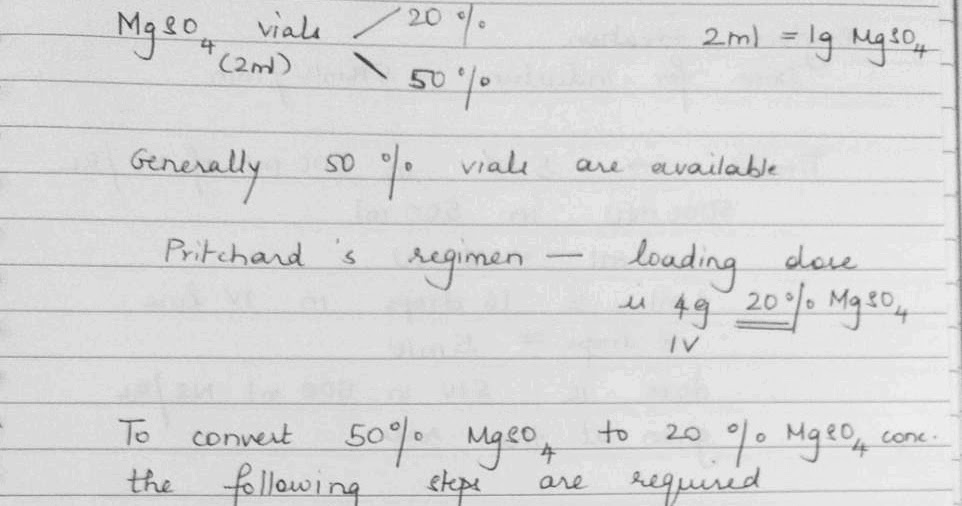 MgSO4 vials 20 % 2ml = 1g MgSO4
(2ml) 50 %
Generally 50 % vials are available
Pritchard's regimen — loading dose
is 4g 20% MgSO4
IV
To convert 50% MgSO4 to 20 % MgSO4 conc.
the following steps are required